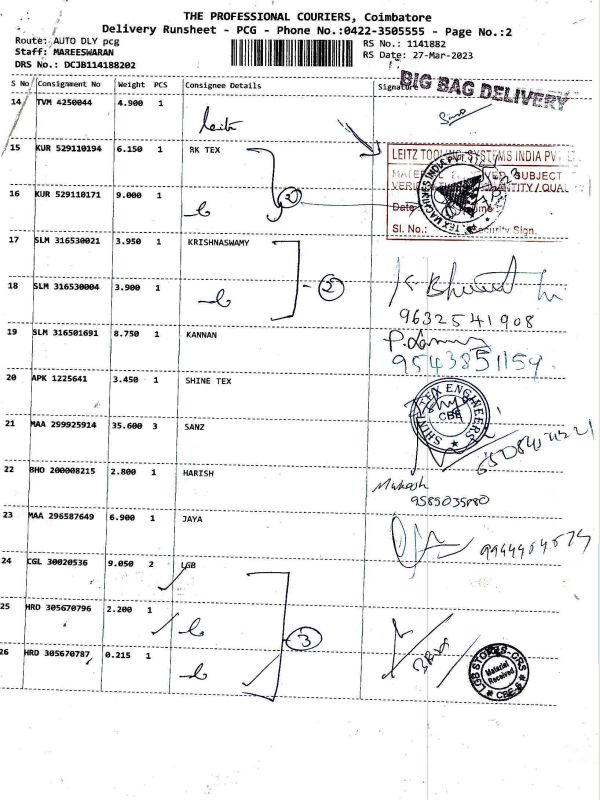 THE PROFESSIONAL COURIERS, Coimbatore
Delivery Runsheet - PCG - Phone No.:0422-3505555 - Page No.:2
Route: AUTO DLY pcg
RS No.: 1141882
Staff: MAREESWARAN
RS Date: 27-Mar-2023
DRS No.: DCJB114188202
S No Consignment No Weight PCS Consignee Details Signature
BIG BAG DELIVERY
14 TVM 4250044 4.900 1
Leitz
15 KUR 529110194 6.150 1 RK TEX
LEITZ TOOLING SYSTEMS INDIA PVT
SUBJECT
QUALITY
16 KUR 529110171 9.000 1
2
Date
Sl. No.: Security Sign.
TEX MACHINES INDIA
17 SLM 316530021 3.950 1 KRISHNASWAMY
18 SLM 316530004 3.900 1
2
9632541908
19 SLM 316501691 8.750 1 KANNAN
9543851154
20 APK 1225641 3.450 1 SHINE TEX
SHINE TEX ENGINEERS
CBE
21 MAA 299925914 35.600 3 SANZ
22 BHO 200008215 2.800 1 HARISH
Mukesh
9585035980
23 MAA 296587649 6.900 1 JAYA
24 CGL 30020536 9.050 2 LGB
25 HRD 305670796 2.200 1
3
26 HRD 305670787 0.215 1
LGB STORES-CRS
Material
Received
CBE-6